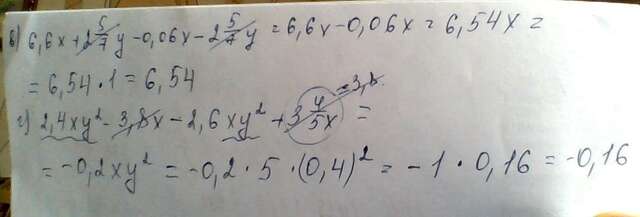 в) 6,6x + 2 5/7 y - 0,06x - 2 5/7 y = 6,6x - 0,06x = 6,54x =
= 6,54 · 1 = 6,54
г) 2,4xy² - 3,8x - 2,6xy² + 3 4/5 x = 3,8
=
= -0,2xy² = -0,2 · 5 · (0,4)² = -1 · 0,16 = -0,16